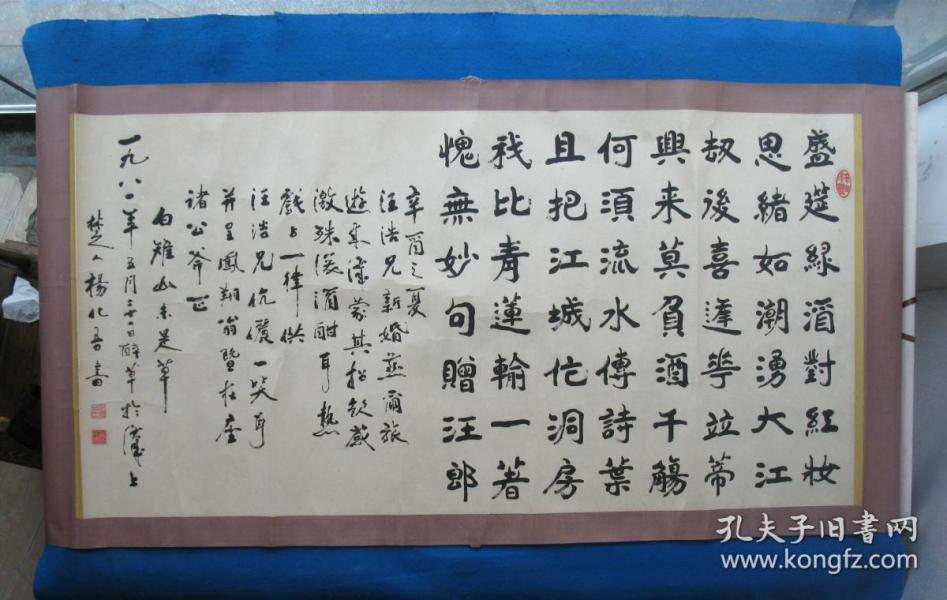 盛筵綠酒對紅妝
思緒如潮湧大江
刼後喜逢華竝蒂
興来莫負酒千觴
何須流水傳詩葉
且把江城作洞房
我比青蓮輸一著
愧無妙句贈汪郎
辛酉之夏
汪浩兄新婚燕爾旅
遊來漢蒙其招飲感
激殊深酒酣耳熱
戲占一律供
汪浩兄伉儷一笑耳
并呈鳳翔翁暨在座
諸公斧正
白雉山未是草
一九八一年五月三十日醉草於漢上
楚人楊化吾書
孔夫子旧書网
www.kongfz.com